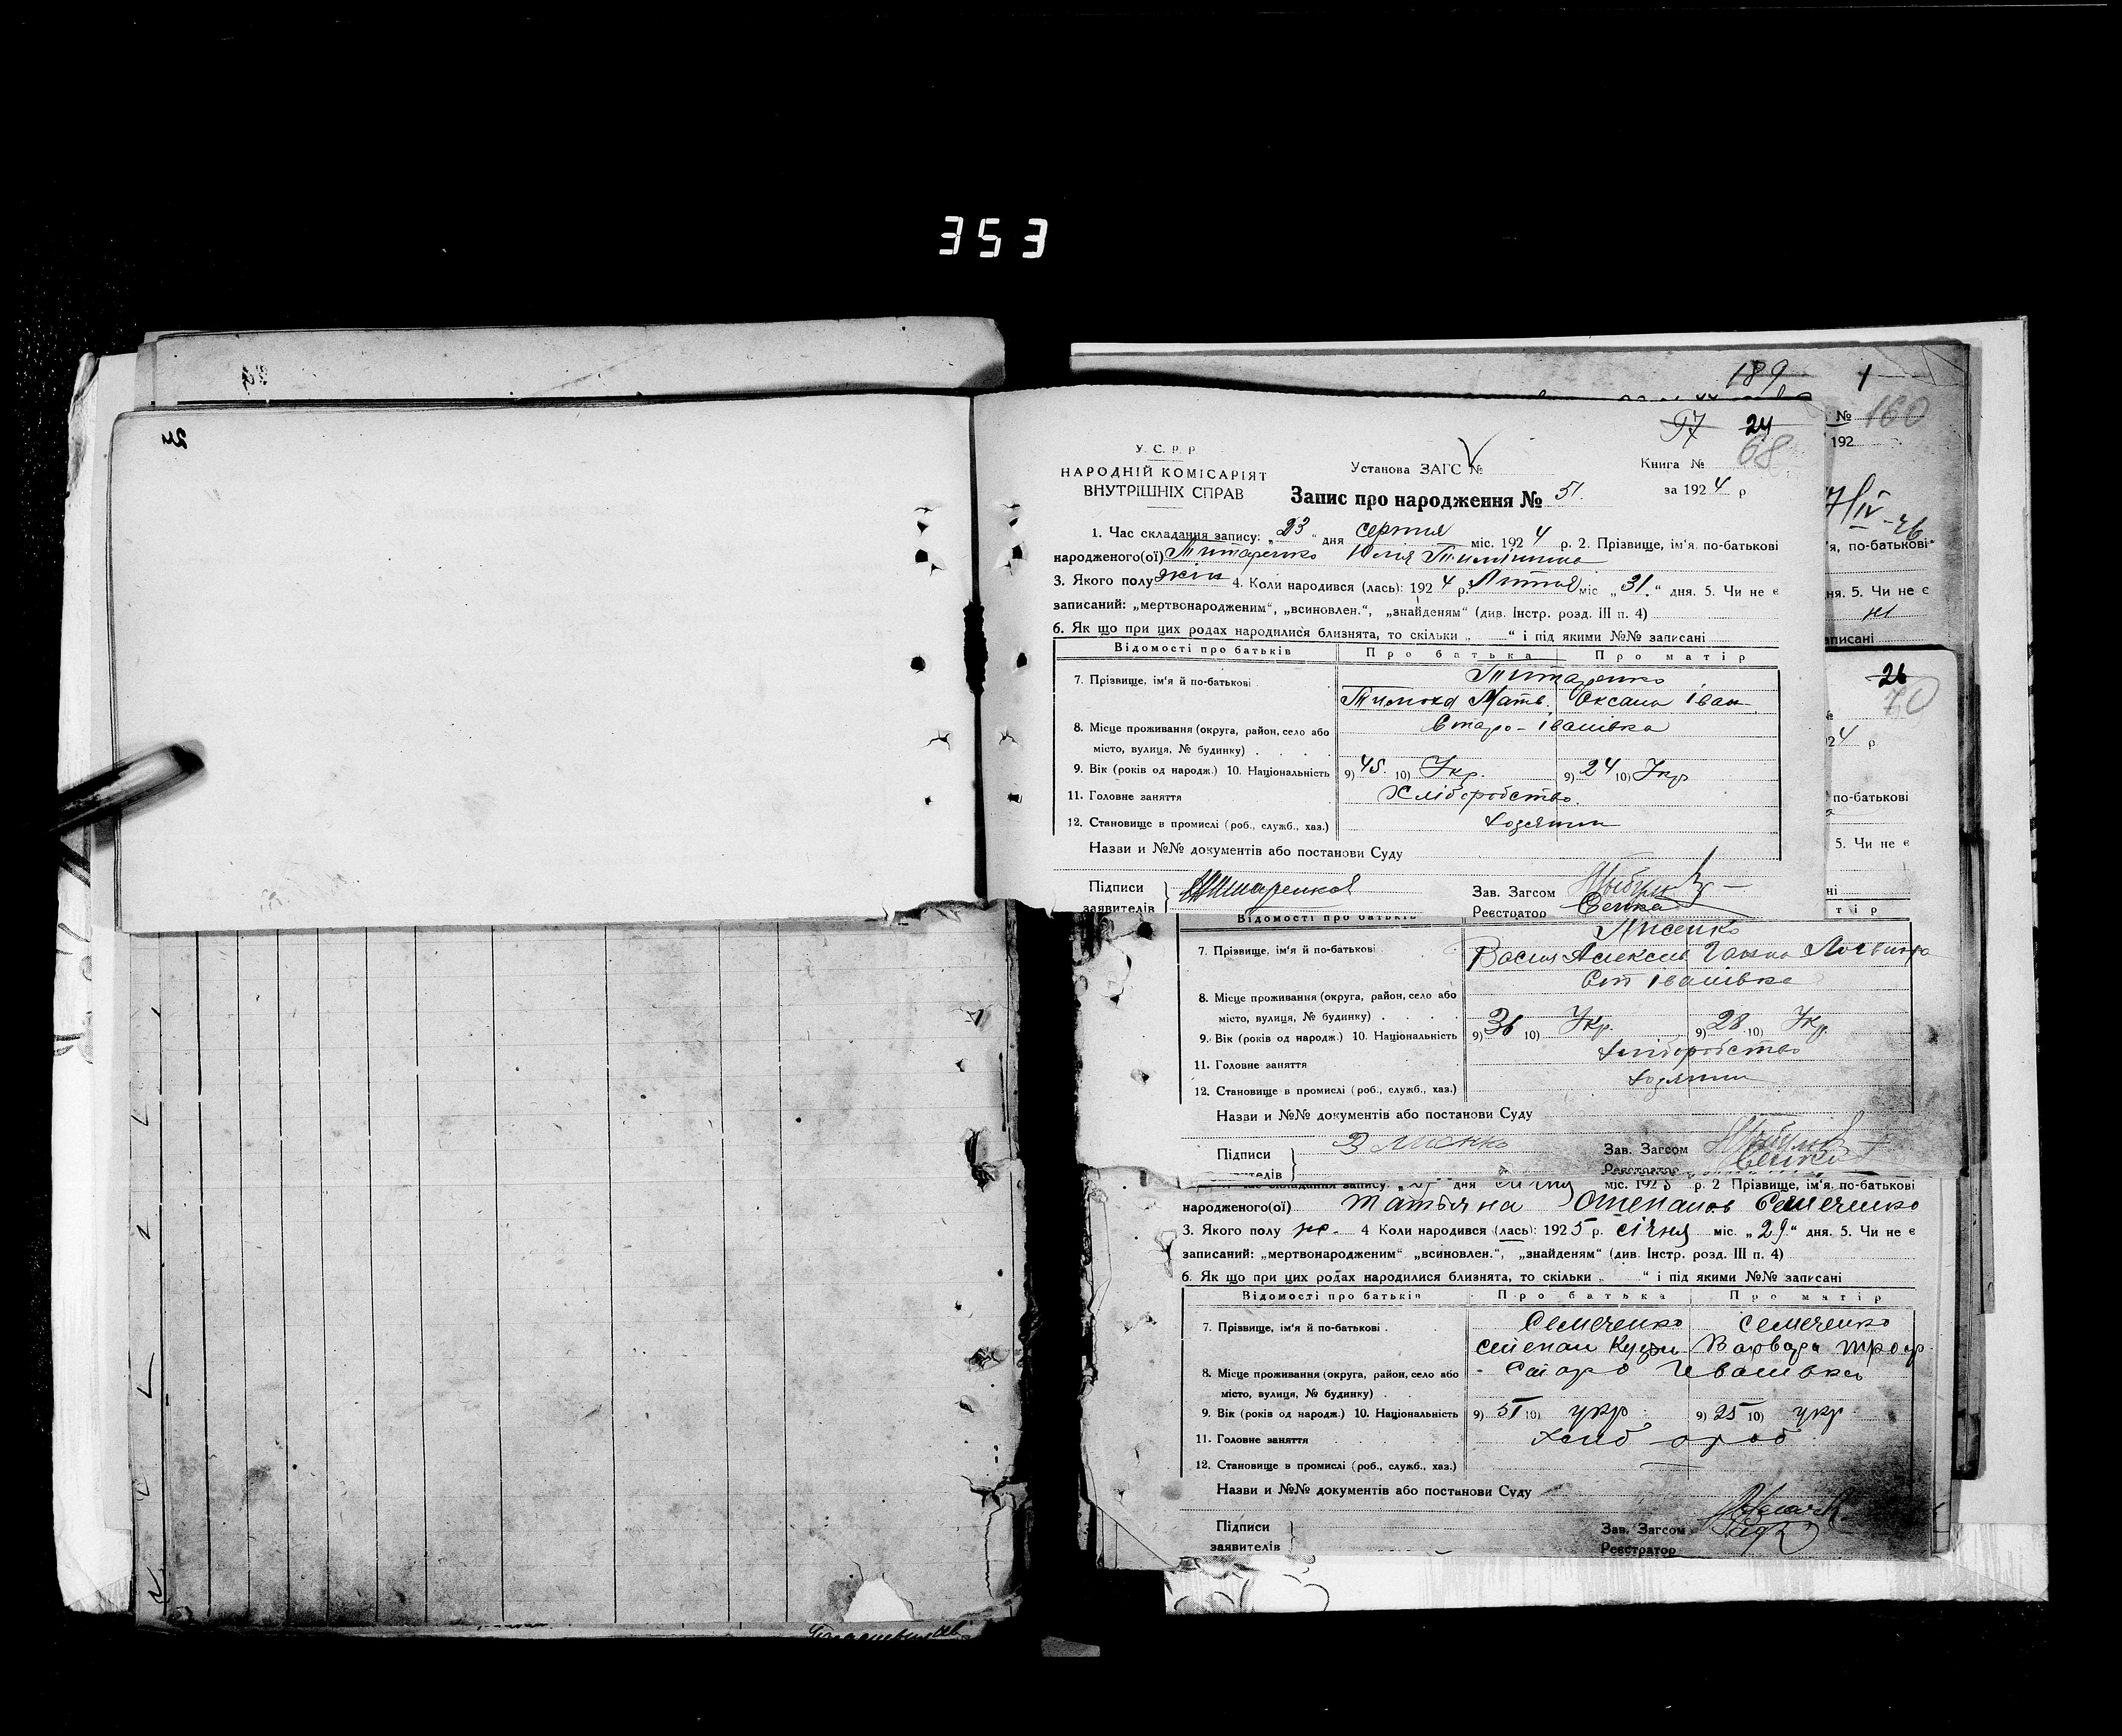 353
189
1
№ 160
192
7/IV-26
'я, по-батькові
ня. 5. Чи не є
аписані
97 24
68
У. С. Р. Р.
НАРОДНІЙ КОМІСАРІЯТ
ВНУТРІШНІХ СПРАВ
Установа ЗАГС №
Книга №
Запис про народження № 51.
за 1924 р
1. Час складання запису: „23“ дня серпня міс. 1924 р. 2. Прізвище, ім'я, по-батькові
народженого(ої) Титаренко Юлія Тимішина
3. Якого полу жін 4. Коли народився (лась): 1924 р. Липня міс „31.“ дня. 5. Чи не є
записаний: „мертвонародженим“, „всиновлен.“, „знайденям“ (див. Інстр. розд. III п. 4)
6. Як що при цих родах народилися близнята, то скільки „ “ і під якими №№ записані
Відомості про батьків Про батька Про матір
7. Прізвище, ім'я й по-батькові Титаренко
Тимоха Матв. Оксана Іван
8. Місце проживання (округа, район, село або Старо-Іванівка
місто, вулиця, № будинку)
9. Вік (років од народж.) 10. Національність 9) 45. 10) Укр. 9) 24 10) Укр
11. Головне заняття Хліборобство.
12. Становище в промислі (роб., служб., хаз.) хозяіни
Назви и №№ документів або постанови Суду
Підписи
заявителів
Зав. Загсом
Реєстратор
26
70
24 р
по-батькові
5. Чи не є
ні
тір
Відомості про батьків
Лисенко
7. Прізвище, ім'я й по-батькові Васил Алексів Ганна
Ст Іванівка
8. Місце проживання (округа, район, село або
місто, вулиця, № будинку)
9. Вік (років од народж.) 10. Національність 9) 36 10) Укр. 9) 28 10) Укр.
11. Головне заняття хліборобство
12. Становище в промислі (роб., служб., хаз.) хозяіни
Назви и №№ документів або постанови Суду
Підписи
Зав. Загсом
Реєстратор
складання запису дня січня міс. 1925 р. 2 Прізвище, ім'я, по-батькові
народженого(ої) Татьяна Степанов Семеченко
3. Якого полу ж. 4 Коли народився (лась): 1925 р. січня міс. „29“ дня. 5. Чи не є
записаний: „мертвонародженим“ „всиновлен.“, „знайденям“ (див. Інстр. розд. III п. 4)
6. Як що при цих родах народилися близнята, то скільки „ “ і під якими №№ записані
Відомості про батьків Про батька Про матір
7. Прізвище, ім'я й по-батькові Семеченко Семеченко
Степан Кузьм Варвара Троф.
8. Місце проживання (округа, район, село або Старо Іванівка
місто, вулиця, № будинку)
9. Вік (років од народж.) 10. Національність 9) 51 10) укр 9) 25 10) укр
11. Головне заняття
12. Становище в промислі (роб., служб., хаз.)
Назви и №№ документів або постанови Суду
Підписи
заявителів
Зав. Загсом
Реєстратор